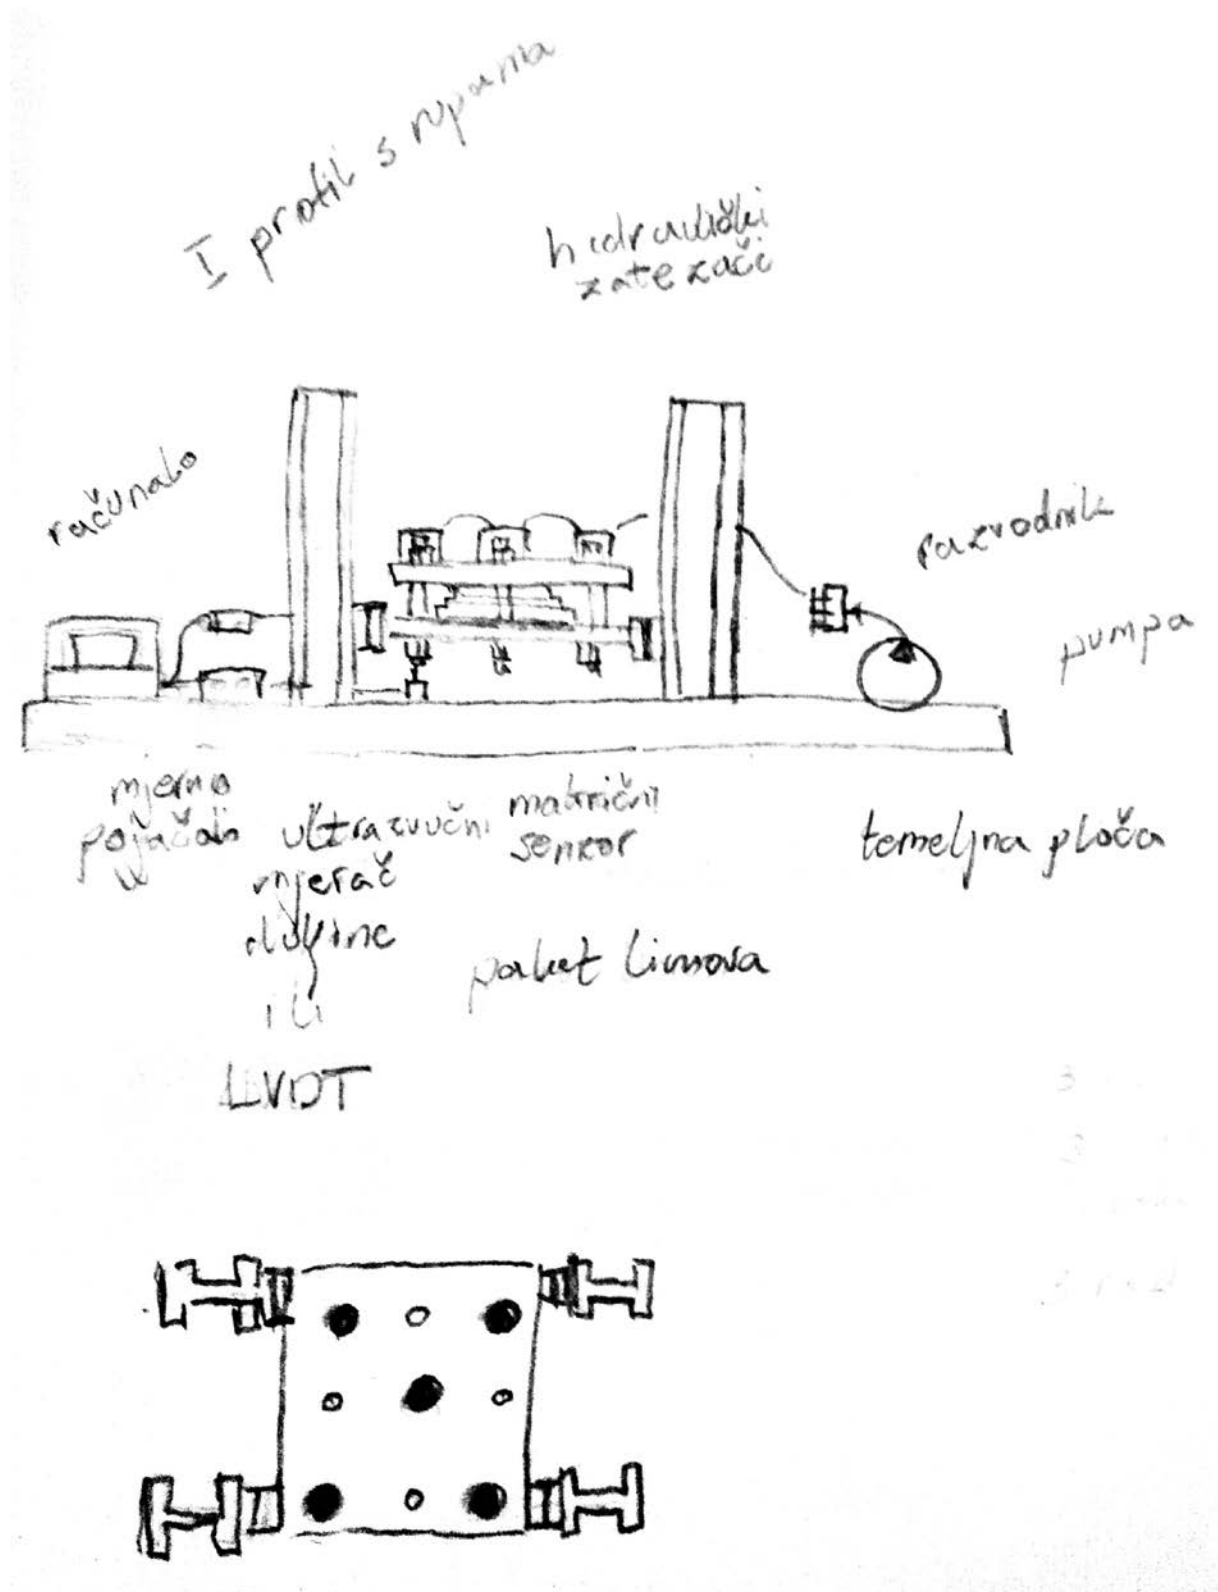 I profil s rupama
hidraulički
zatezači
računalo
razvodnik
pumpa
mjerno
pojačalo
ultrazvučni
mjerač
dužine
ili
LVDT
matrični
senzor
temeljna ploča
paket limova